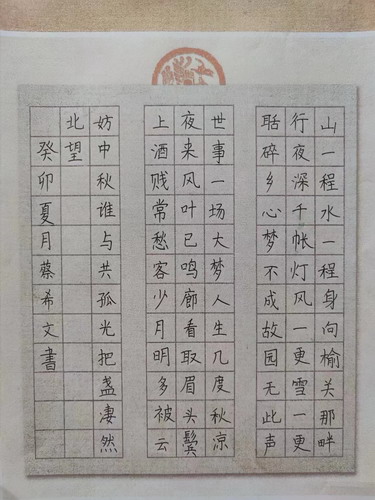 山一程水一程身向榆关那畔
行夜深千帐灯风一更雪一更
聒碎乡心梦不成故园无此声
世事一场大梦人生几度秋凉
夜来风叶已鸣廊看取眉头鬓
上酒贱常愁客少月明多被云
妨中秋谁与共孤光把盏淒然
北望
癸卯夏月蔡希文書